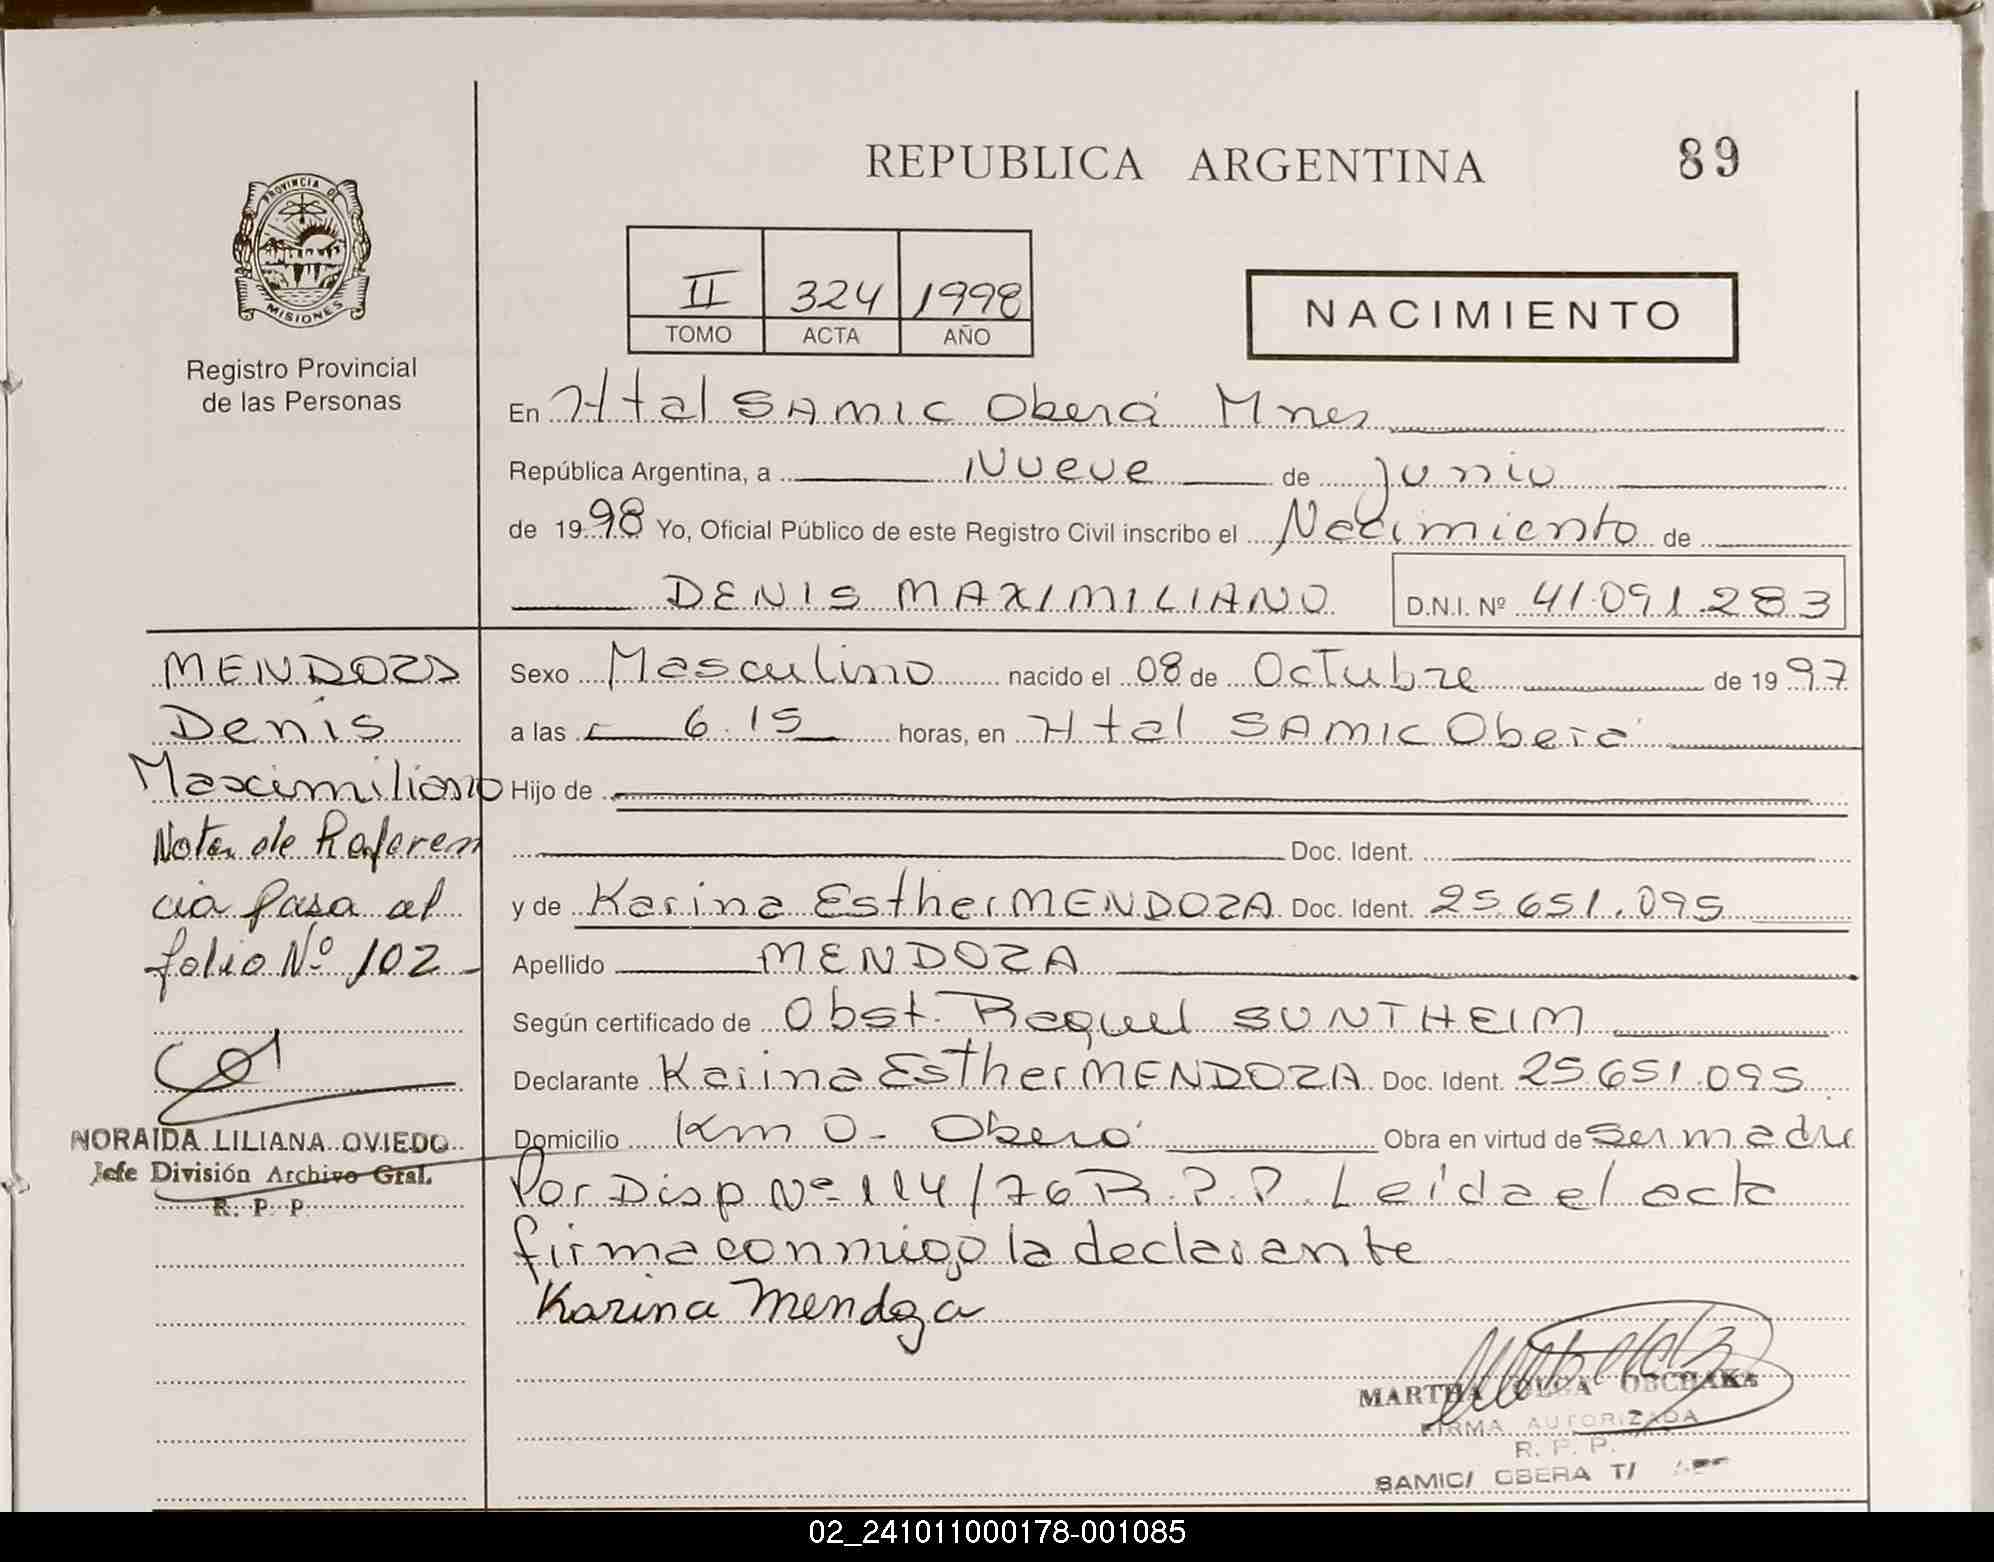 REPUBLICA ARGENTINA
89
PROVINCIA DE
MISIONES
Registro Provincial
de las Personas
II 324 1998
TOMO ACTA AÑO
NACIMIENTO
En Htal SAMIC Oberá Mnes
República Argentina, a Nueve de Junio
de 1998 Yo, Oficial Público de este Registro Civil inscribo el Nacimiento de
DENIS MAXIMILIANO D.N.I. Nº 41.091.283
MENDOZA
Denis
Maximiliano
Nota de Referen
cia pasa al
folio Nº 102
NORAIDA LILIANA OVIEDO
Jefe División Archivo Gral.
R. P. P.
Sexo Masculino nacido el 08 de Octubre de 1997
a las 6.15 horas, en Htal SAMIC Oberá
Hijo de
Doc. Ident.
y de Karina Esther MENDOZA Doc. Ident. 25.651.095
Apellido MENDOZA
Según certificado de Obst. Raquel SUNTHEIM
Declarante Karina Esther MENDOZA Doc. Ident. 25.651.095
Domicilio Km 0 - Oberá Obra en virtud de ser madre
Por Disp Nº 114/76 R.P.P. Leída el acta
firma conmigo la declarante
Karina Mendoza
MARTHA OLGA OBCHAKA
FIRMA AUTORIZADA
R. P. P.
SAMIC/ OBERA T/
02_241011000178-001085